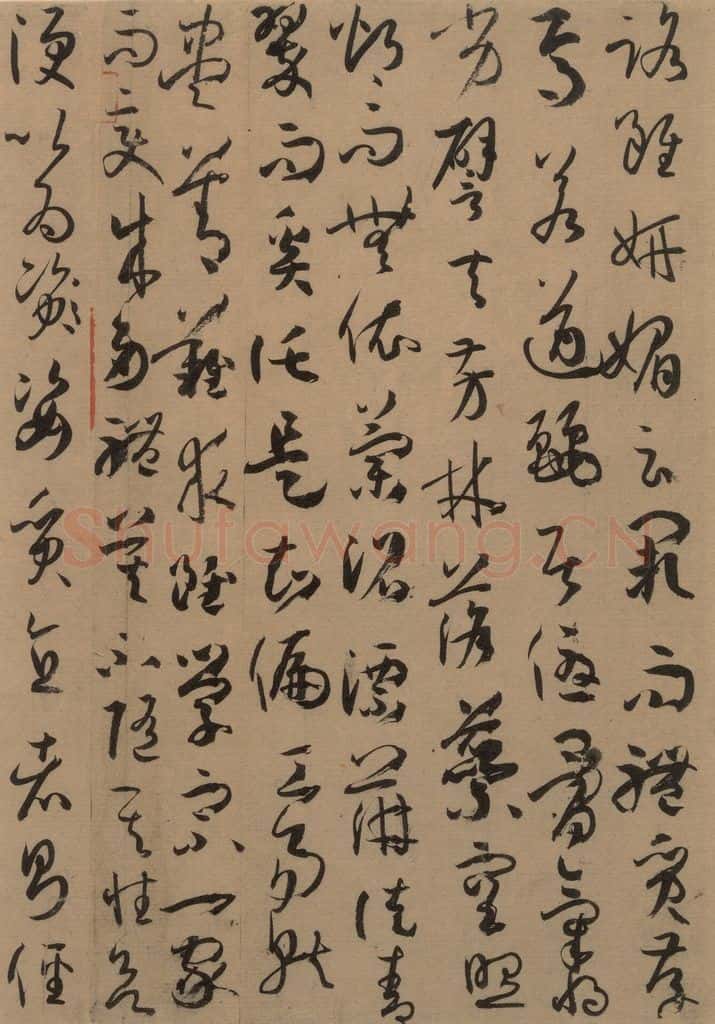 路雖妍媚云闕而體質存
焉若遒麗居優骨氣將
劣譬夫芳林落蘂空照
灼而無依蘭沼漂蓱徒青
翠而奚託是知偏工易就
盡善難求雖學宗一家
而變成多體莫不隨其性欲
便以為資姿質直者則俓
Shufawang.CN